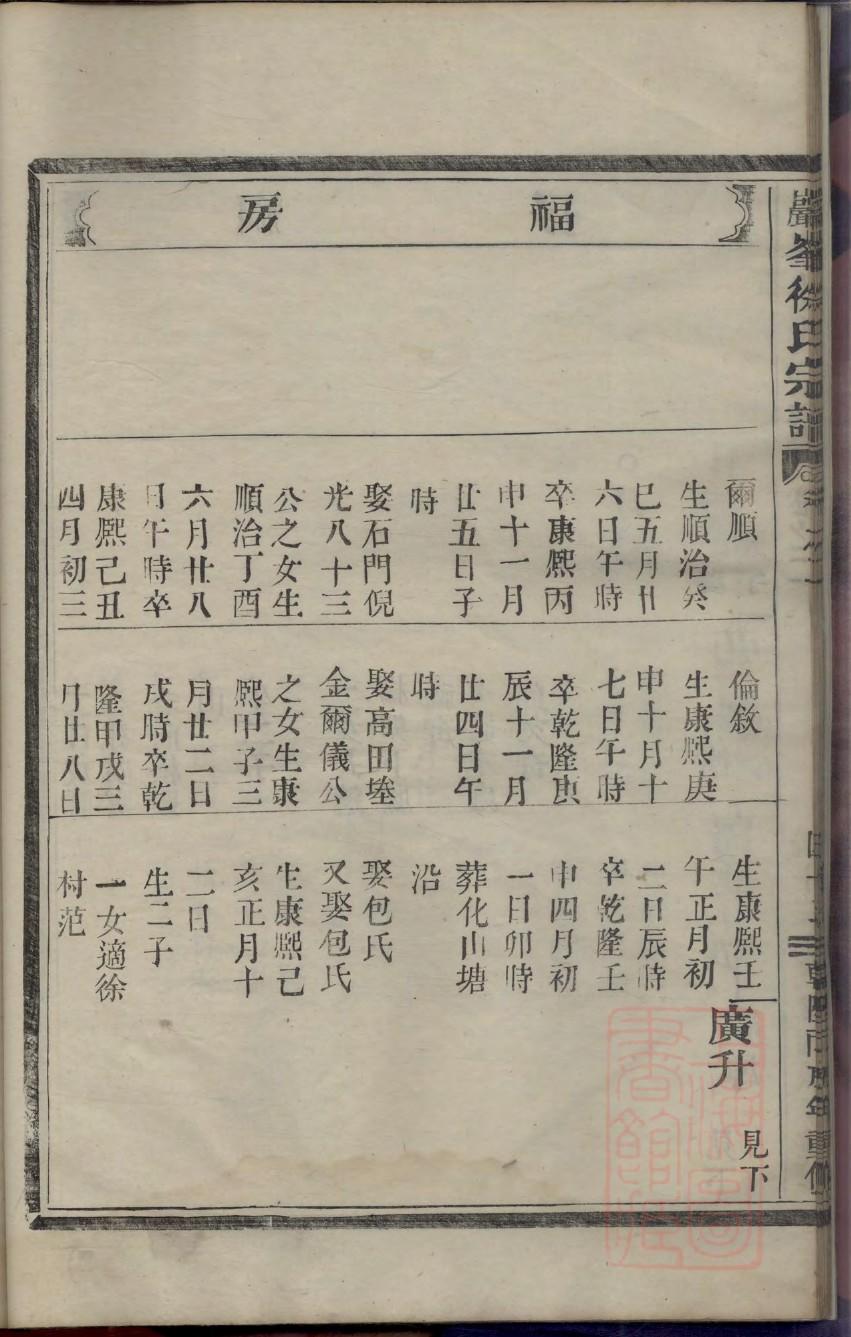 巖峯徐氏宗譜
福房
爾順
生順治癸
巳五月廿
六日午時
卒康熙丙
申十一月
廿五日子
時
娶石門倪
光八十三
公之女生
順治丁酉
六月廿八
日午時卒
康熙己丑
四月初三
倫敘
生康熙庚
申十月十
七日午時
卒乾隆庚
辰十一月
廿四日午
時
娶高田埄
金爾儀公
之女生康
熙甲子三
月廿二日
戌時卒乾
隆甲戌三
月廿八日
生康熙壬
午正月初
二日辰時
卒乾隆壬
申四月初
一日卯時
葬化山塘
沿
娶包氏
又娶包氏
生康熙己
亥正月十
二日
生二子
一女適徐
村范
廣升
見下